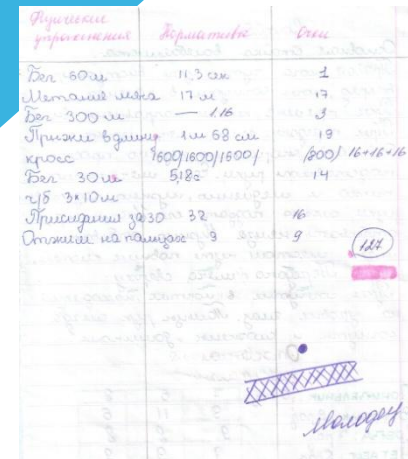 Физические упражнения Нормативы Очки
Бег 60 м 11,3 сек 1
Метание мяча 17 м 17
Бег 300 м — 1.16 3
Прыжки в длину 1 м 68 см 19
кросс 1600/1600/1600/ (800) 16+16+16
Бег 30 м 5,8 с 14
ч/б 3×10 м
Приседания за 30 32 16
Отжим на пальцах 9 9
127
Молодец